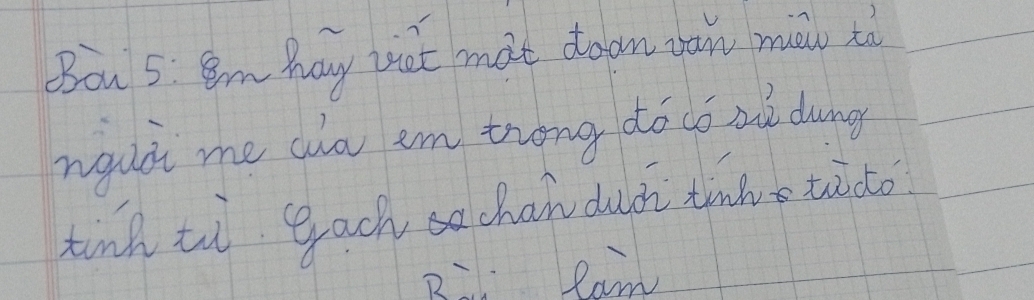 Bài 5: Em hãy viết một đoạn văn miêu tả
người mẹ của em trong đó có sử dụng
tính từ. Gạch chân dưới tính từ đó.
Bài làm